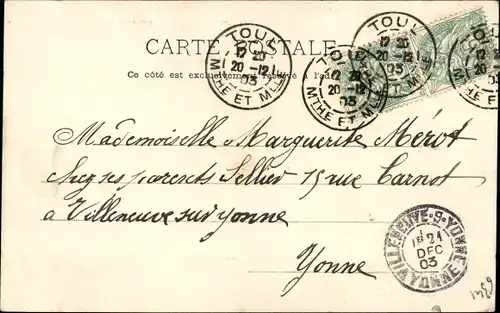 CARTE POSTALE
Ce côté est exclusivement réservé à l'adr
TOUL
12 20
20-12
03
MTHE ET MLLE
TOUL
12 20
20-12
03
MTHE ET MLLE
TOUL
12 20
20-12
03
MTHE ET MLLE
Mademoiselle Marguerite Mérot
chez ses parents Sellier 15 rue Carnot
à Villeneuve sur yonne
Yonne
VILLENEUVE-S-YONNE
21
DEC
03
YONNE